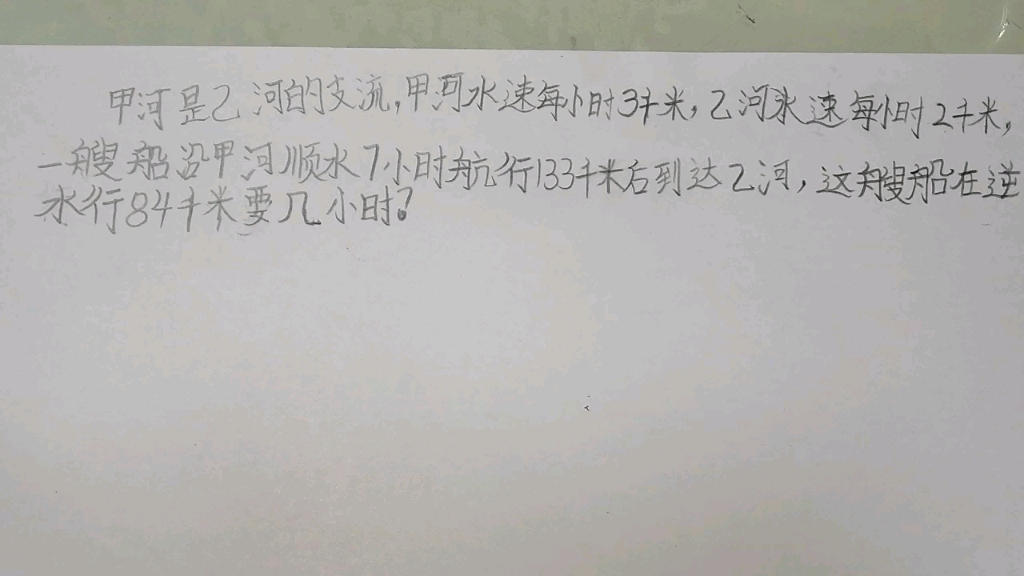 甲河是乙河的支流,甲河水速每小时3千米,乙河水速每小时2千米,
一艘船沿甲河顺水7小时航行133千米后到达乙河,这艘船在逆
水行84千米要几小时?